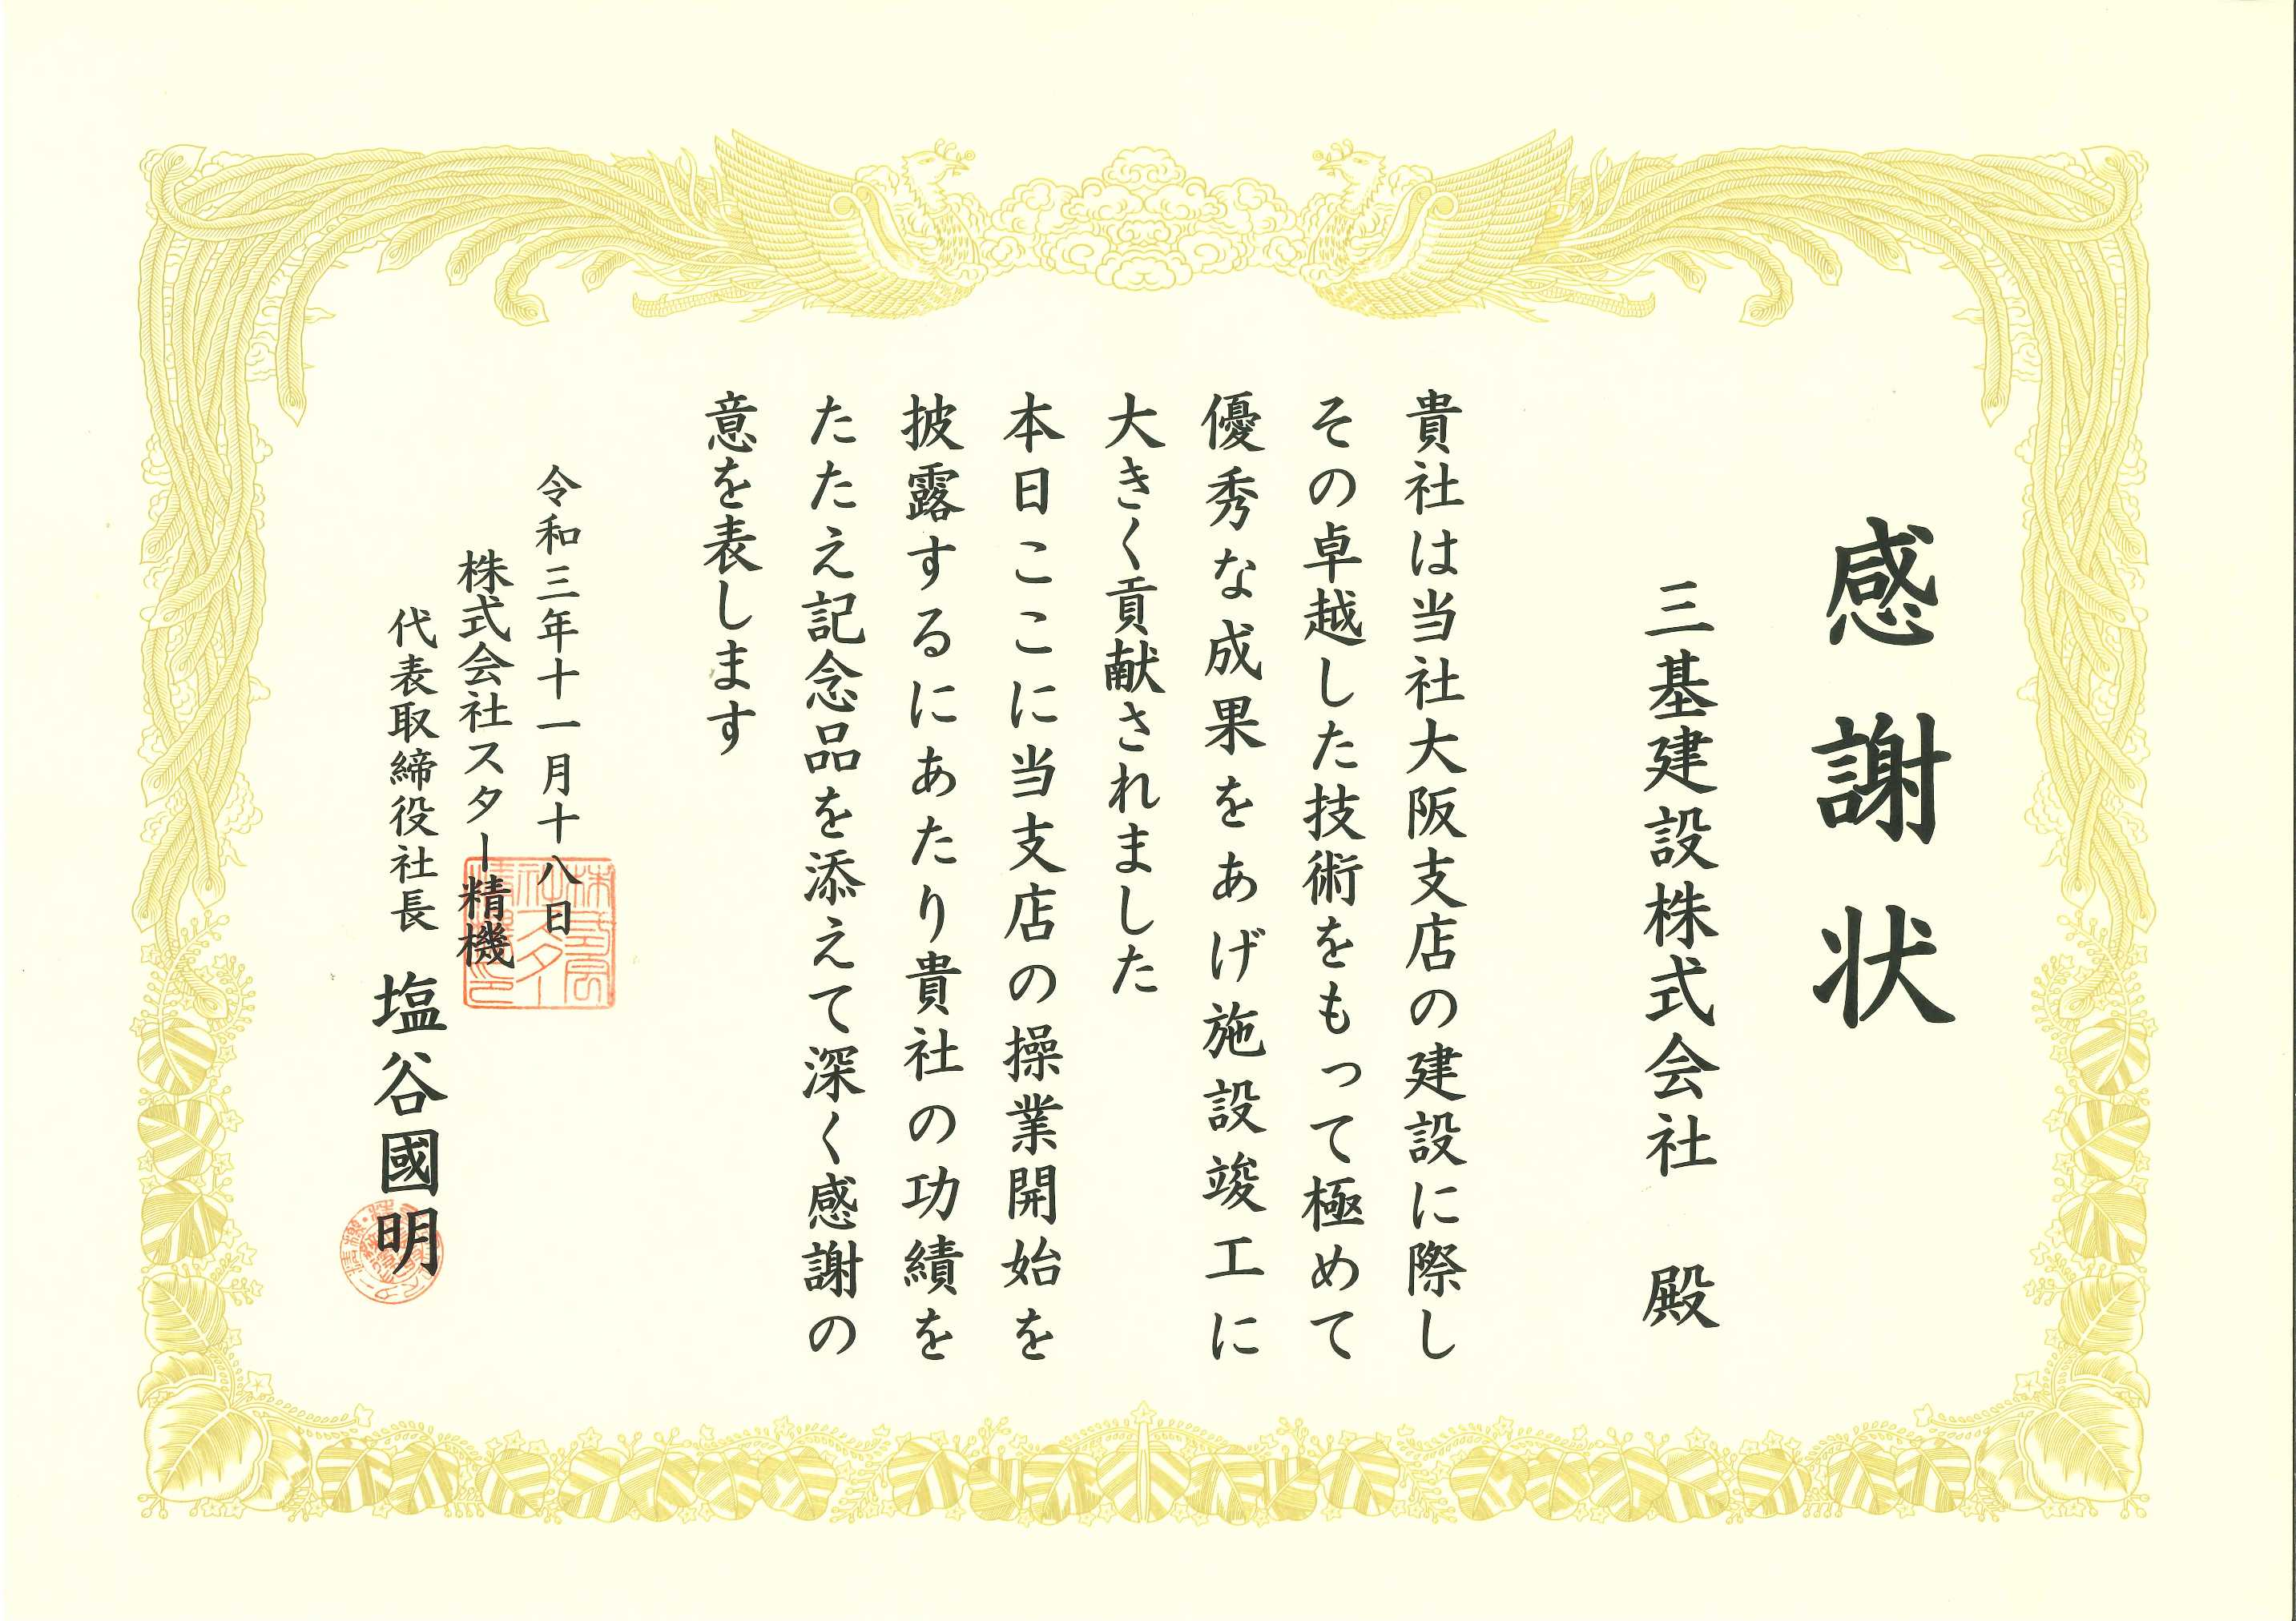 感謝状
三基建設株式会社 殿
貴社は当社大阪支店の建設に際し
その卓越した技術をもって極めて
優秀な成果をあげ施設竣工に
大きく貢献されました
本日ここに当支店の操業開始を
披露するにあたり貴社の功績を
たたえ記念品を添えて深く感謝の
意を表します
令和三年十一月十八日
株式会社スター精機
代表取締役社長 塩谷國明